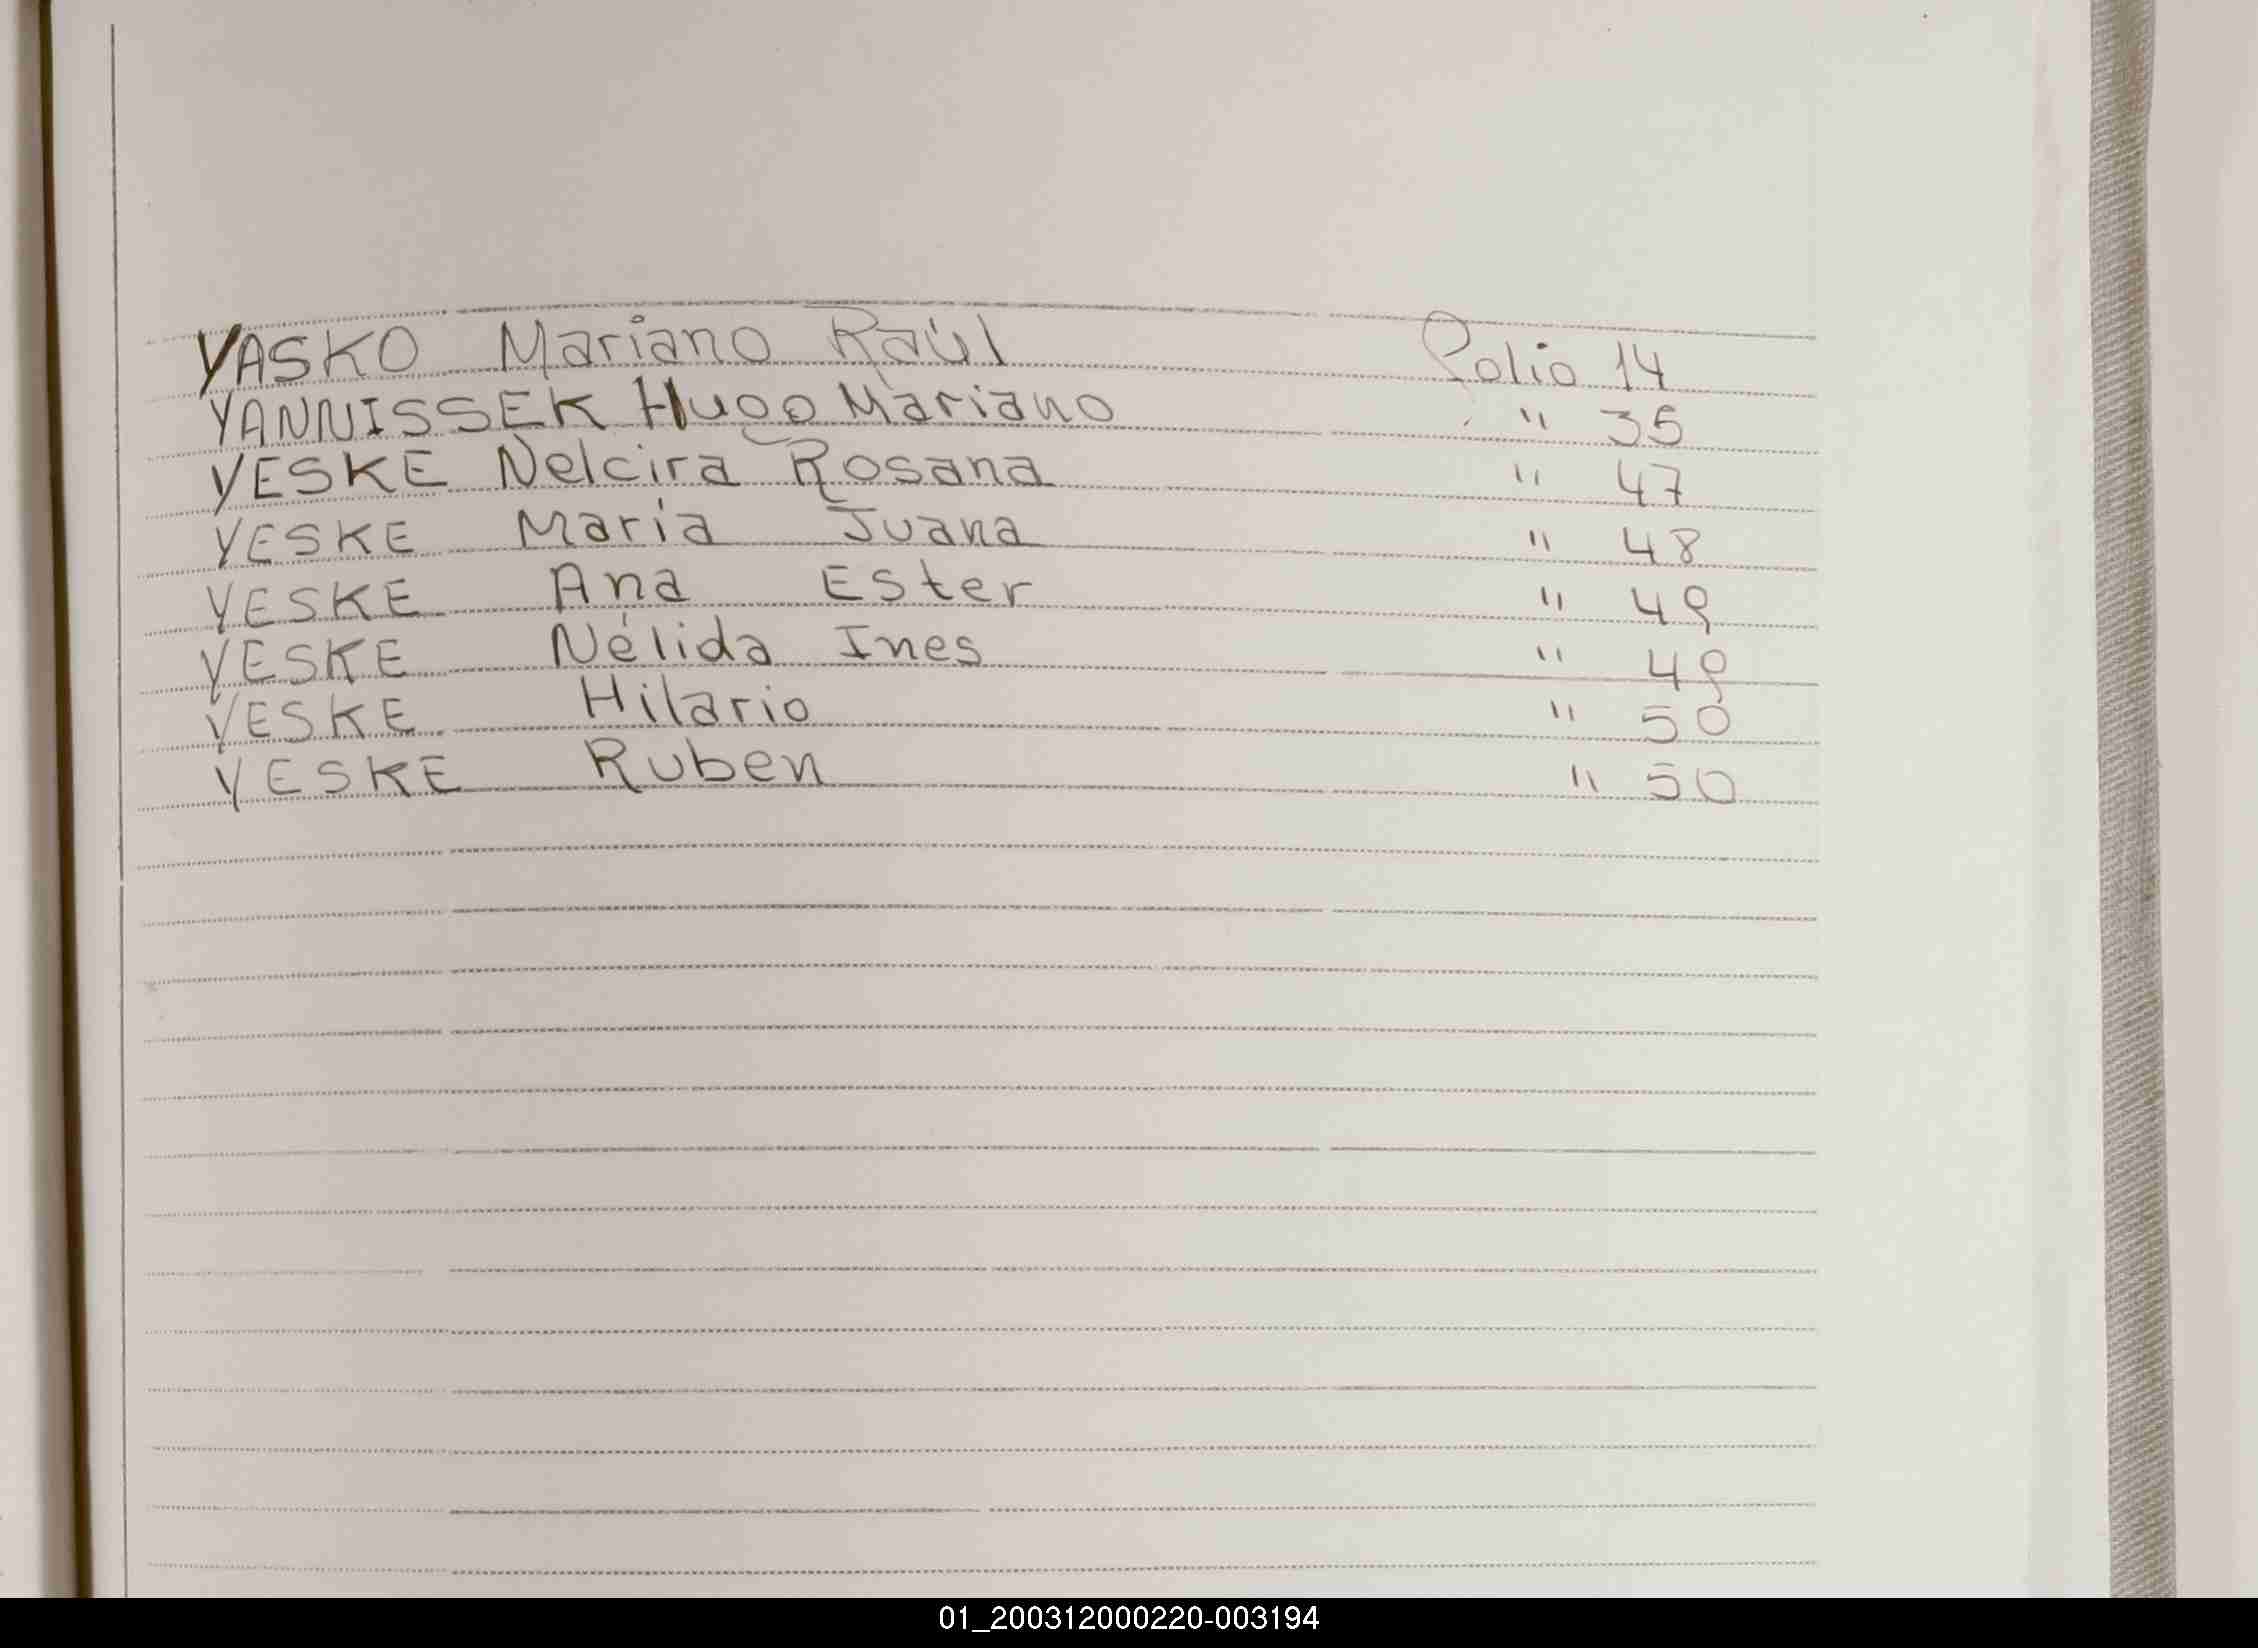 YASKO Mariano Raúl Folio 14
YANNISSEK Hugo Mariano " 35
YESKE Nelcira Rosana " 47
YESKE María Juana " 48
YESKE Ana Ester " 49
YESKE Nélida Ines " 49
YESKE Hilario " 50
YESKE Ruben " 50
01_200312000220-003194